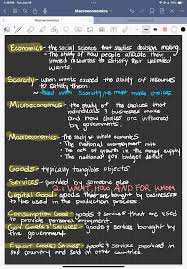 Macroeconomics
Macroeconomics
Economics - the social science that studies decision making
• the study of how people allocate their
limited resources to satisfy their unlimited
wants.
Scarcity - when wants exceed the ability of resources
to satisfy them
• faced with scarcity, we must make choices
Microeconomics - the study of the choices that
individuals & businesses make
and how choices are influenced
by governments.
Macroeconomics - the study of whole economies
• The national unemployment rate
• rate of growth in the money supply
• the national gov budget deficit
Goods - typically tangible objects
Services - provided by someone else
WHAT, HOW, AND FOR WHOM
Capital Goods - goods bought by businesses
to be used in the production process.
Consumption Goods - goods & services that are used
to provide personal enjoyment
Gov Goods & Services - goods & services bought by
the government.
Export Goods & Services - goods & services produced in
one country and sold in another